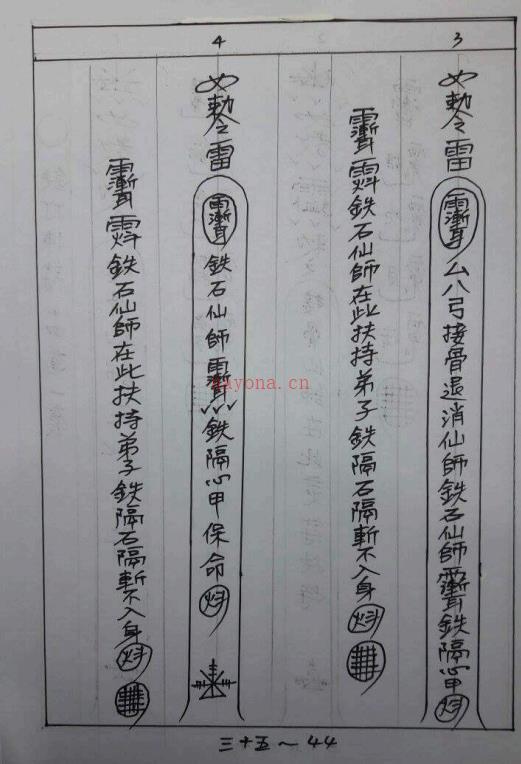 3
勅令雷
厶八弓接骨退消仙師鉄石仙師鉄隔心甲
鉄石仙師在此扶持弟子鉄隔石隔暫不入身
4
勅令雷
鉄石仙師鉄隔心甲保命
鉄石仙師在此扶持弟子鉄隔石隔暫不入身
三十五～44